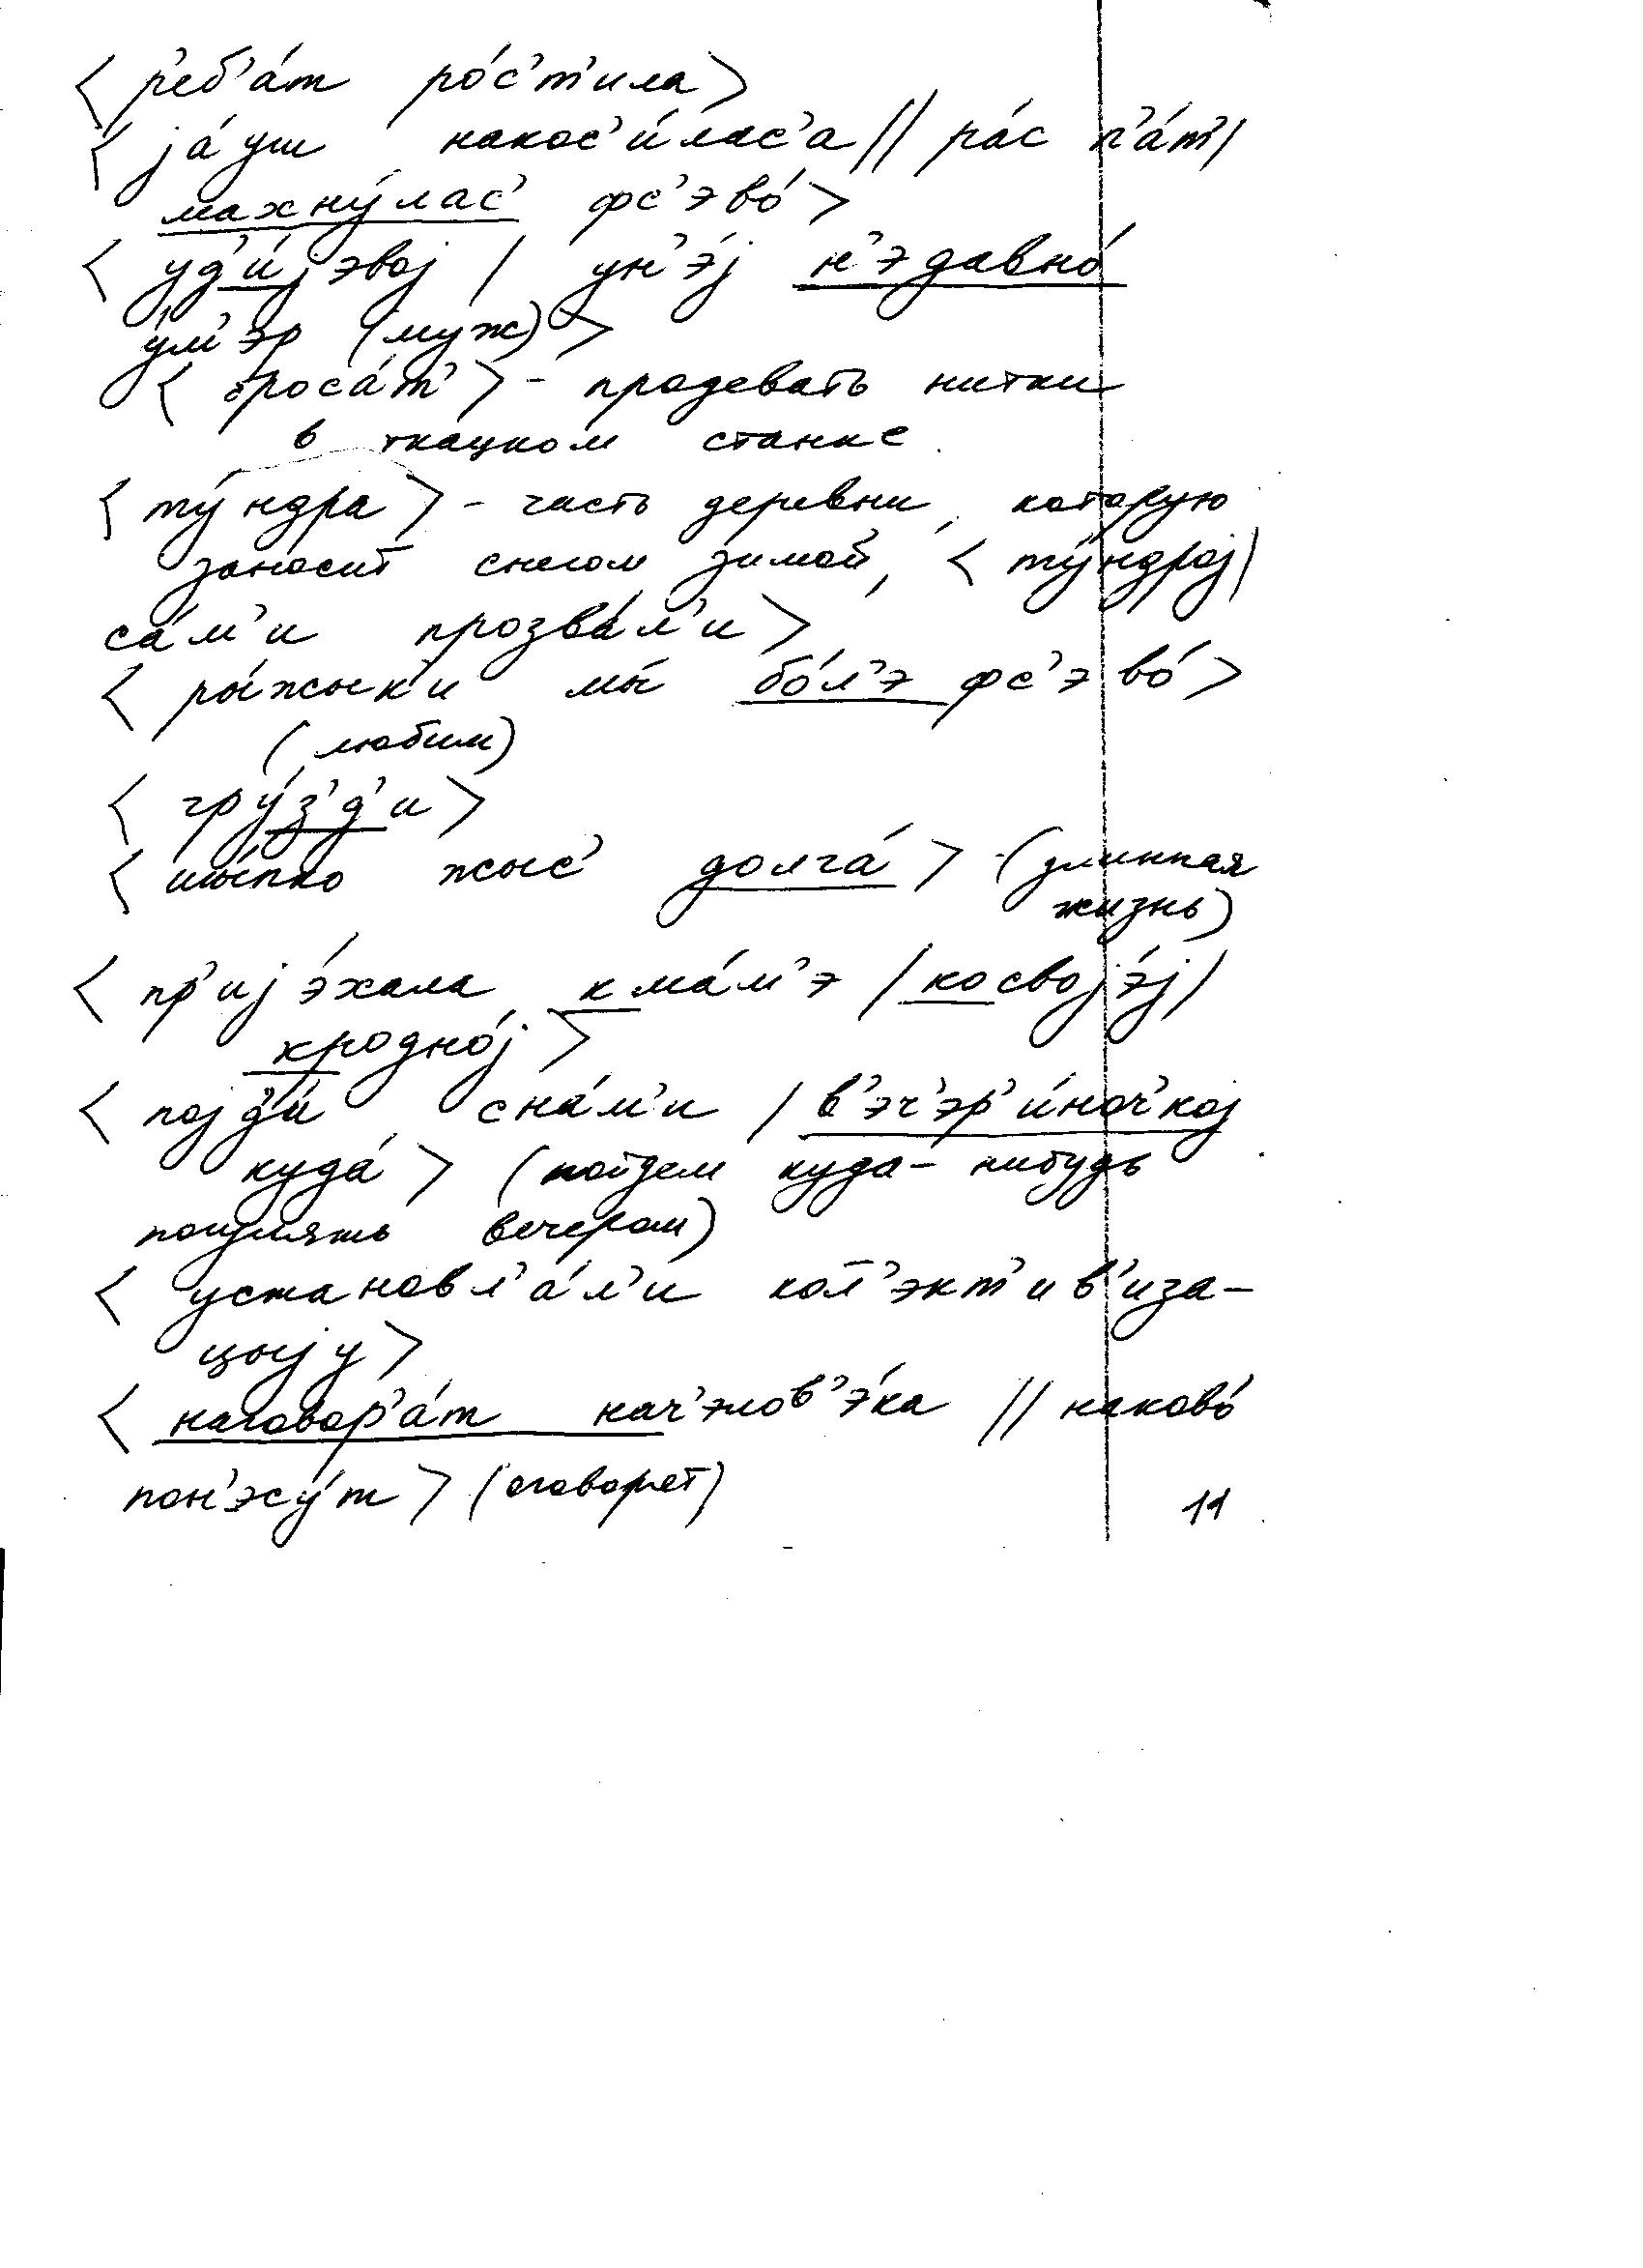 < р'еб'а́т ро́с'т'ила>
< jа́уш накос'и́лас'а // ра́с п'а́т' /
махну́лас' фс'эво́ >
< уд'и́jэвоj / ун'э́j н'эдавно́
у́м'эр (муж) >
< броса́т' > - продевать нитки
в ткацком станке.
< ту́ндра > - часть деревни, которую
заносит снегом зимой, < ту́ндроj /
са́м'и прозва́л'и >
< ры́жык'и мы́ бо́л'э фс'эво́ >
(любим)
< гру́з'д'и >
< шы́пко жыс' долга́ > - (длинная
жизнь)
< пр'иjэ́хала к ма́м'э / косвоjэ́j /
кродно́j >
< поjд'и́ сна́м'и / в'эч'эр'и́ноч'коj
куда́ > (пойдем куда-нибудь
погулять вечером)
< установл'а́л'и кол'экт'ив'иза-
цыjу >
< наговор'а́т нач'элов'э́ка // наково́
пон'эсу́т > (оговорят)
11